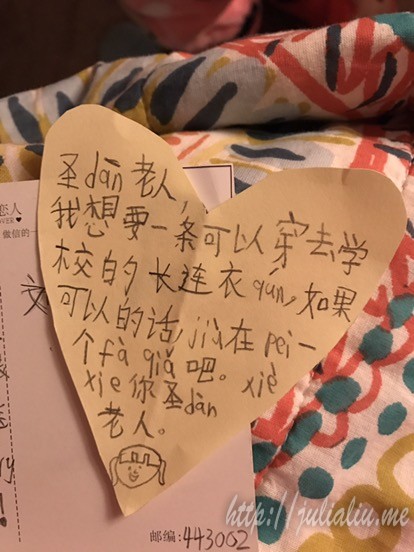 圣dān老人,
我想要一条可以穿去学
校的长连衣qún。如果
可以的话,jiù在pei一
个fà qiǎ吧。xiè
xie你圣dàn
老人。
恋人
VER
做信的一
文
ry
!
邮编:443002
http://julialiu.me